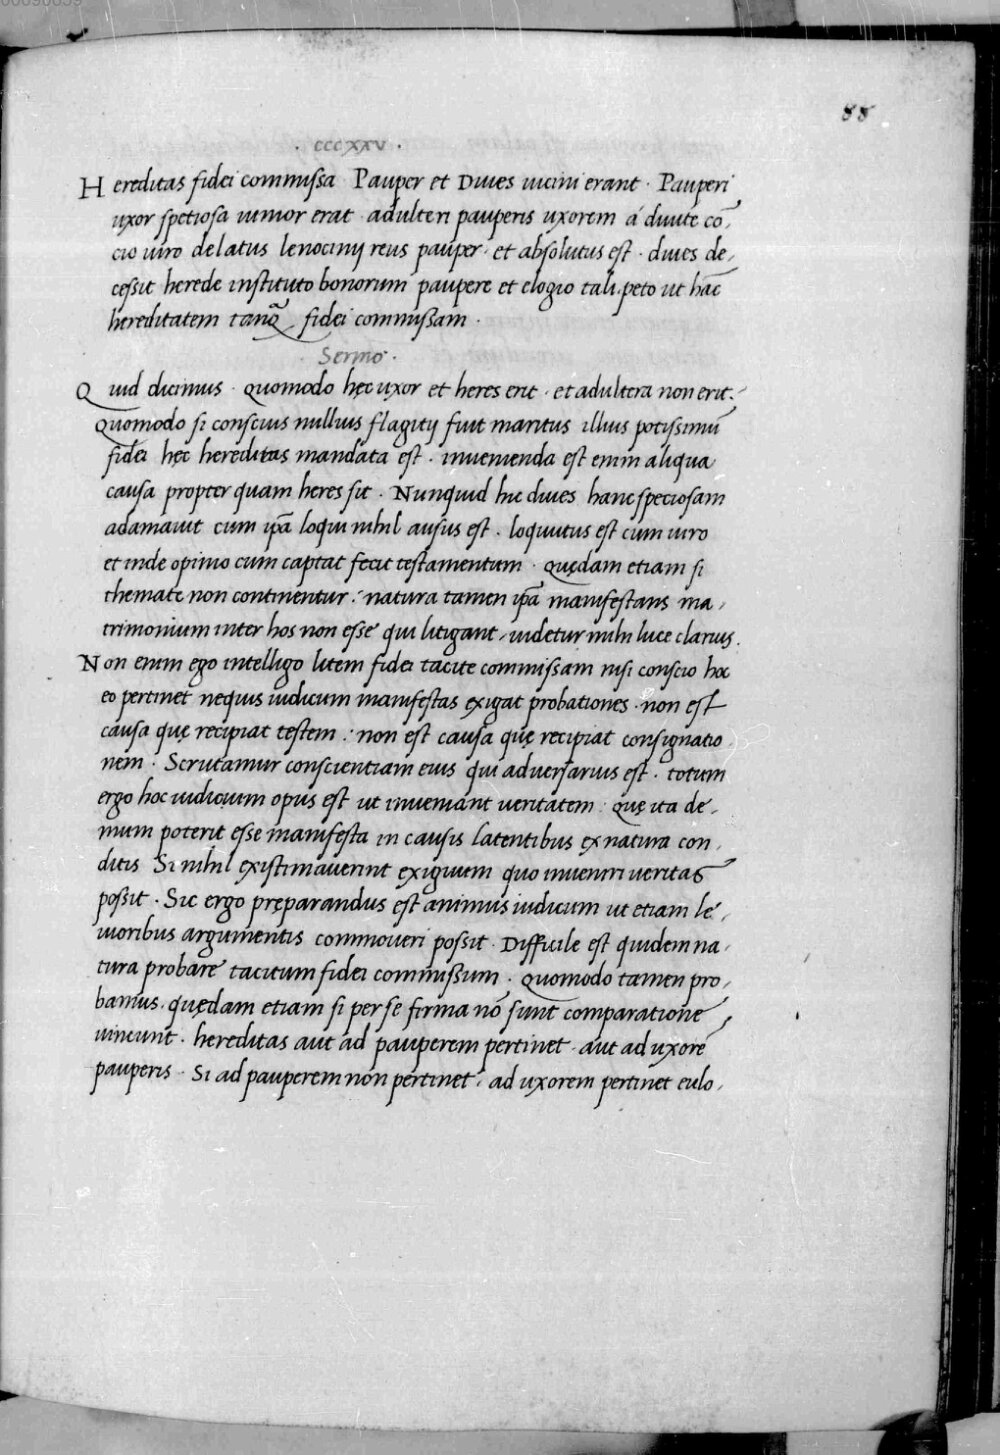 88
· CCCXXV ·
Hereditas fidei commissa Pauper et Diues uicini erant · Pauperi
uxor spetiosa iunior erat · adulteri pauperis uxorem á diuite cō-
cio uiro delatus lenocinij reus pauper · et absolutus est · diues de-
cessit herede instituto bonorum paupere et elogio tali · peto ut hāc
hereditatem tanq̃ fidei commissam ·
· Sermo ·
Quid dicimus · quomodo hęc uxor et heres erit · et adultera non erit :
Quomodo si conscius nullius flagitij fuit maritus illius potissimū
fidei hęc hereditas mandata est · inuenienda est enim aliqua
causa propter quam heres sit · Nunquid hic diues hanc speciosam
adamauit cum ip̄a loqui nihil ausus est · loquutus est cum uiro
et inde opinio cum captat fecit testamentum · quędam etiam si
themate non continentur : natura tamen ip̄a manifestans ma-
trimonium inter hos non esse qui litigant uidetur mihi luce clarius .
Non enim ego intelligo litem fidei tacite commissam nisi conscio hoc
eo pertinet nequis iudicum manifestas exigat probationes · non est
causa quę recipiat testem : non est causa quę recipiat consignatio-
nem · Scrutamur conscientiam eius qui aduersarius est · totum
ergo hoc iudicium opus est ut inueniant ueritatem : quę ita de-
mum poterit esse manifesta in causis latentibus ex natura con-
ditis Si nihil existimauerint exiguum quo inueniri ueritas
possit · Sic ergo pręparandus est animus iudicum ut etiam le-
uioribus argumentis commoueri possit · Difficile est quidem na-
tura probare tacitum fidei commissum · quomodo tamen pro-
bamus · quędam etiam si per se firma nō sunt comparatione
uincunt · hereditas aut ad pauperem pertinet · aut ad uxorē
pauperis · Si ad pauperem non pertinet · ad uxorem pertinet eulo-